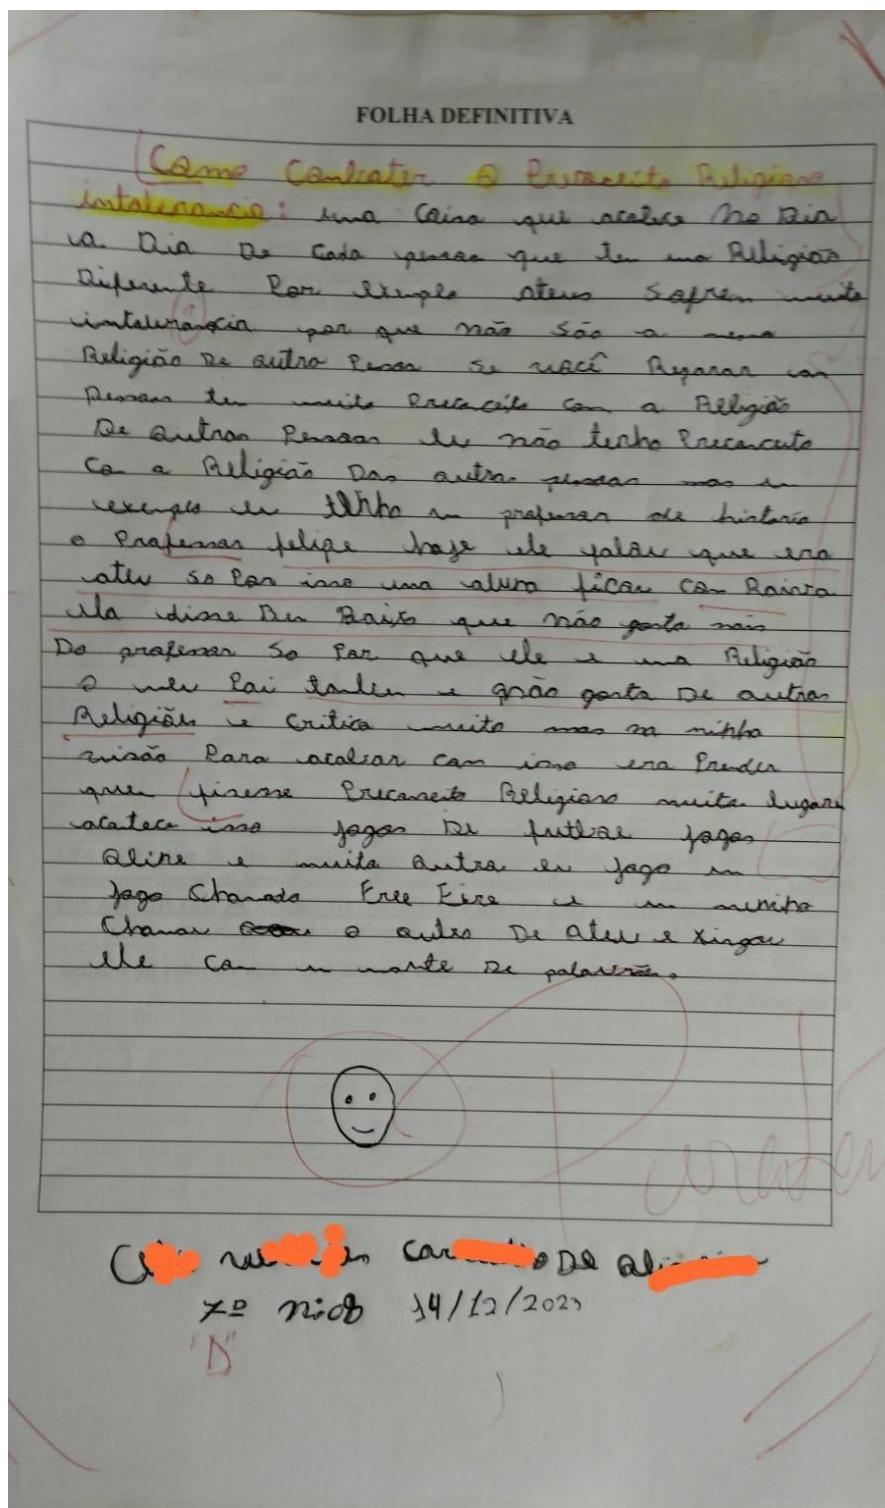 FOLHA DEFINITIVA
Como Conbater o Preconceito Religioso
intolerancia: uma Coisa que acotece no Dia
a Dia De Cada pessoa que tem uma Religião
Diferente Por exemplo ateus Sofrem muito
intolerância por que não são a mesma
Religião De outra Pessoa Se você Reparar
Pessoas tem muito Preconceito com a Religião
De outras Pessoas eu não tenho Preconceito
Co a Religião Das outra pessoas mas
exemplo eu tenho um professor de historia
o Professor felipe hoje ele falou que era
ateu so Por isso uma aluna ficou Com Raiva
ela disse Em Baixo que não gosta mais
Do professor So Por que ele e uma Religião
O meu Pai também e não gosta De outras
Religiões e critica muito mas na minha
visão Para acabar com isso era Prender
quem fizesse Preconceito Religioso muita lugare
acotece isso jogos De futbol jogos
Oline e muita outra eu jogo um
jogo Chamado Free Fire e um menino
Chamou o outro De ateu e xingou
ele com um monte De palavrão.
De
7º 14/12/2023
"D"